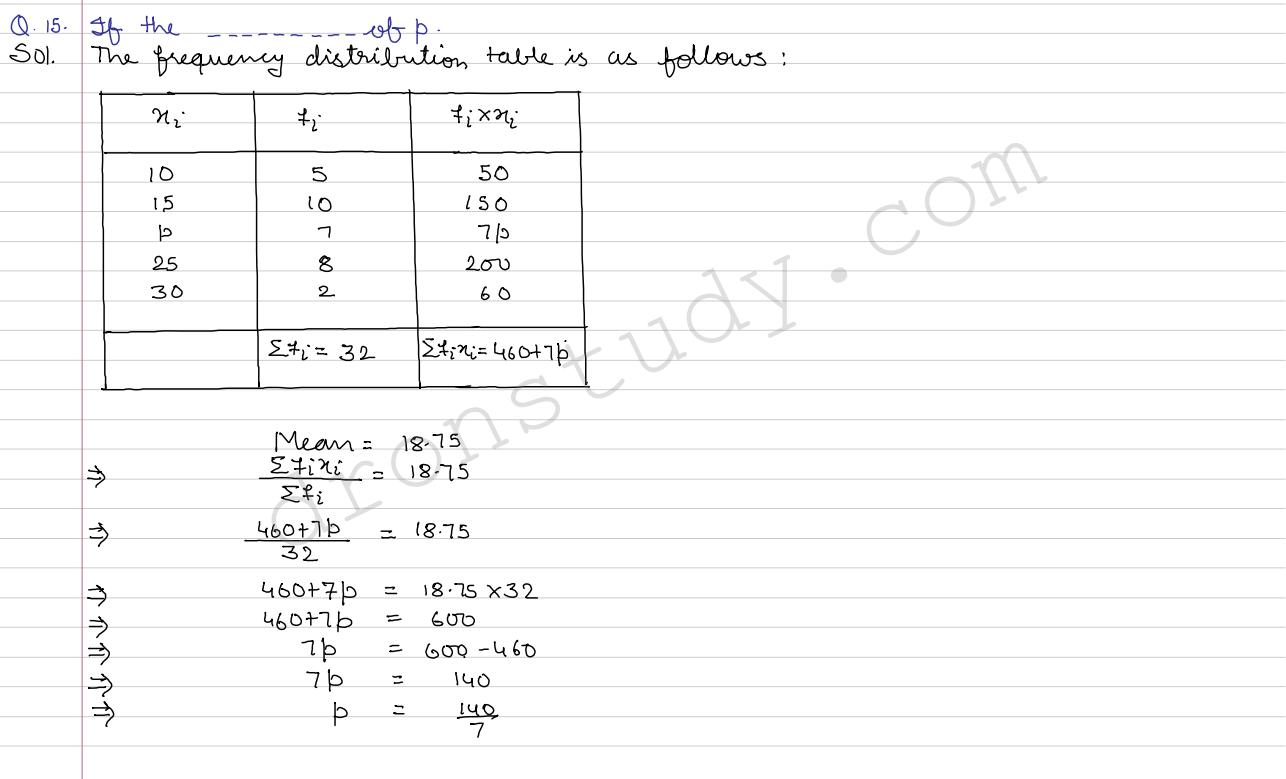 Q.15. If the ---------- of p.
Sol. The frequency distribution table is as follows:
xi fi fi×xi
10 5 50
15 10 150
p 7 7p
25 8 200
30 2 60
Σfi = 32 Σfixi = 460+7p
Mean = 18.75
⇒ Σfixi/Σfi = 18.75
⇒ 460+7p/32 = 18.75
⇒ 460+7p = 18.75×32
⇒ 460+7p = 600
⇒ 7p = 600-460
⇒ 7p = 140
⇒ p = 140/7
dronstudy.com